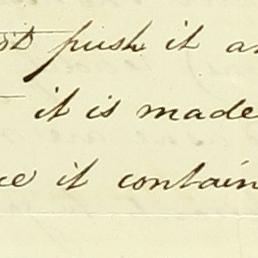 push it
it is made
it contain